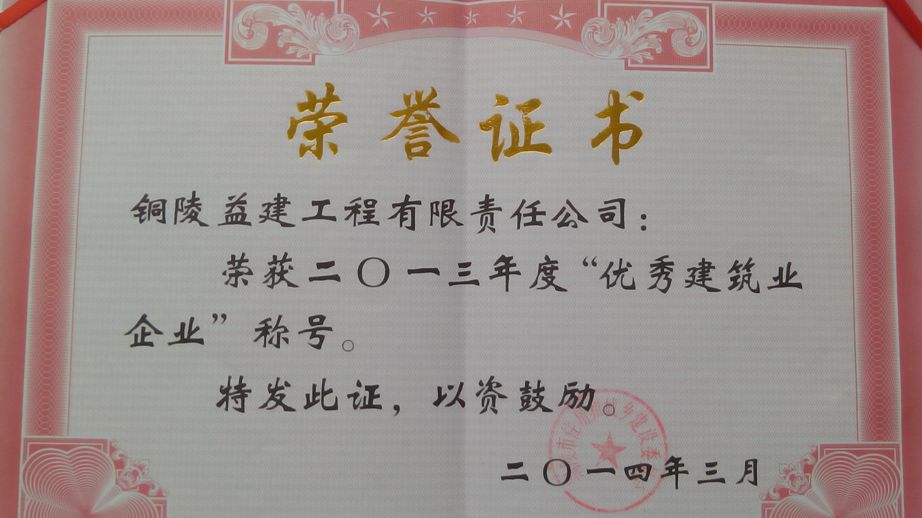 荣誉证书
铜陵益建工程有限责任公司：
荣获二〇一三年度“优秀建筑业
企业”称号。
特发此证，以资鼓励。
二〇一四年三月